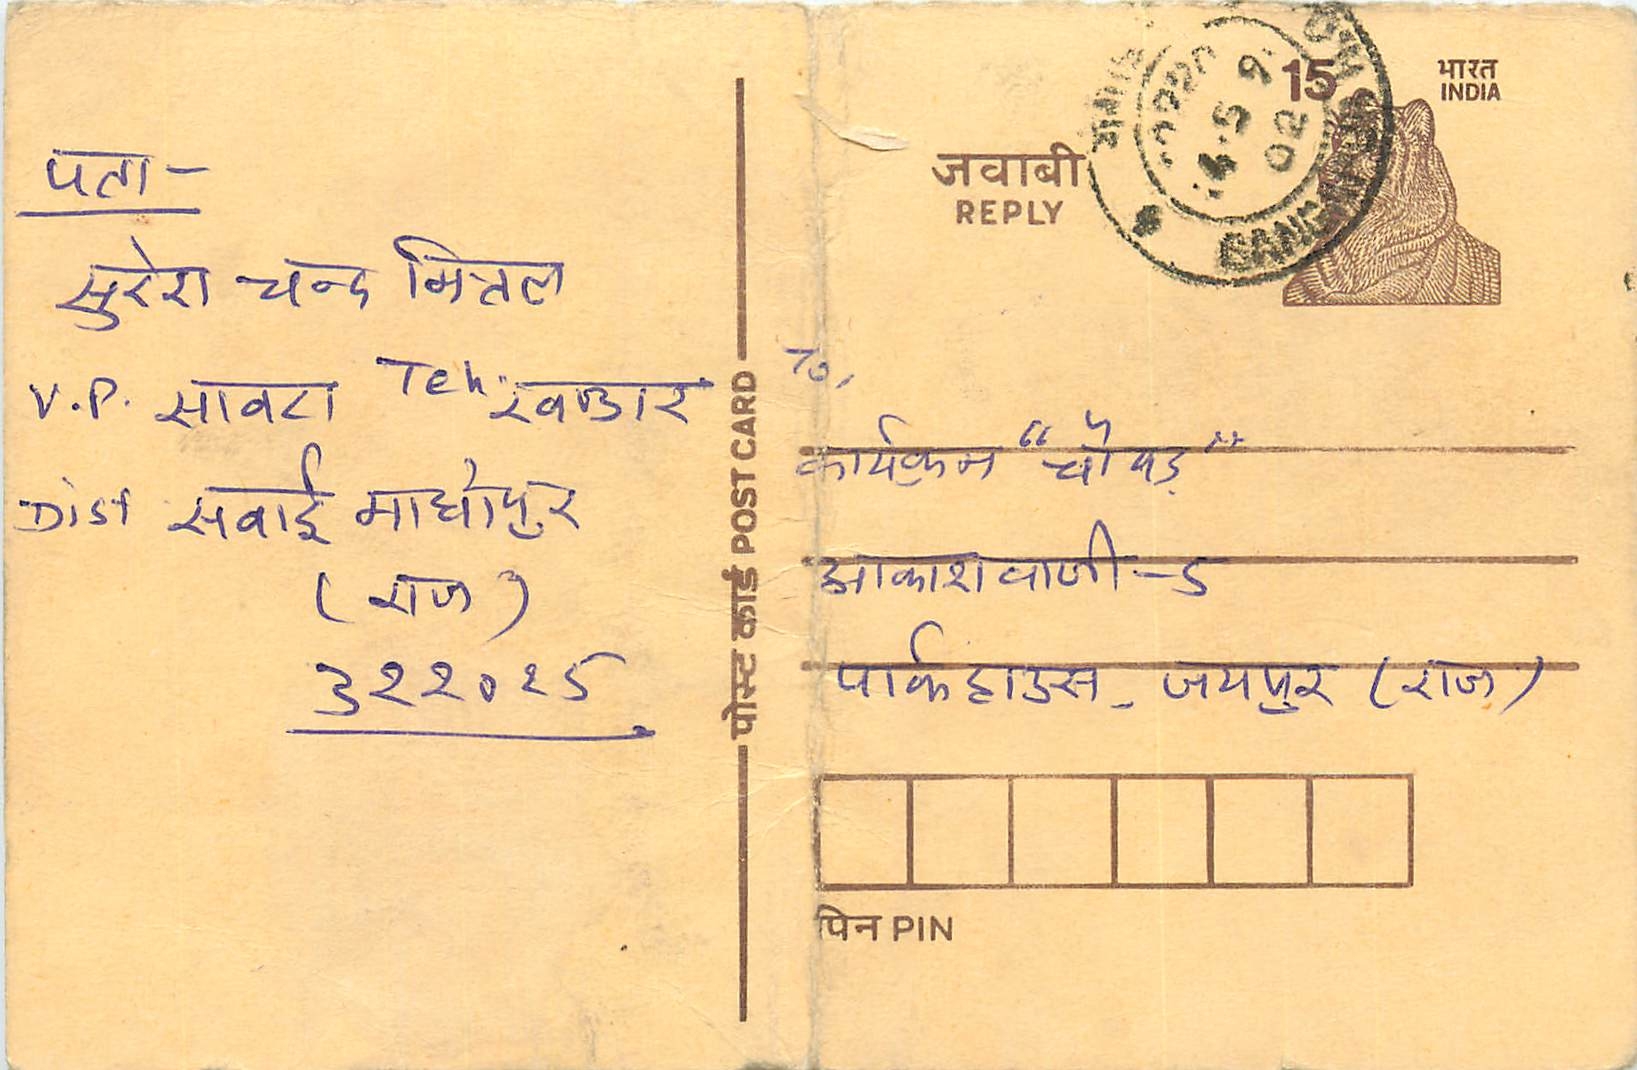 पता-
सुरेश चन्द मित्तल
V.P. सावटा Teh. खण्डार
Dist सवाई माधोपुर
(राज)
३२२०२५
पोस्ट कार्ड POST CARD
15
भारत
INDIA
जवाबी
REPLY
To,
कार्यक्रम "चौपड़"
आकाशवाणी-5
पार्क हाउस, जयपुर (राज)
पिन PIN